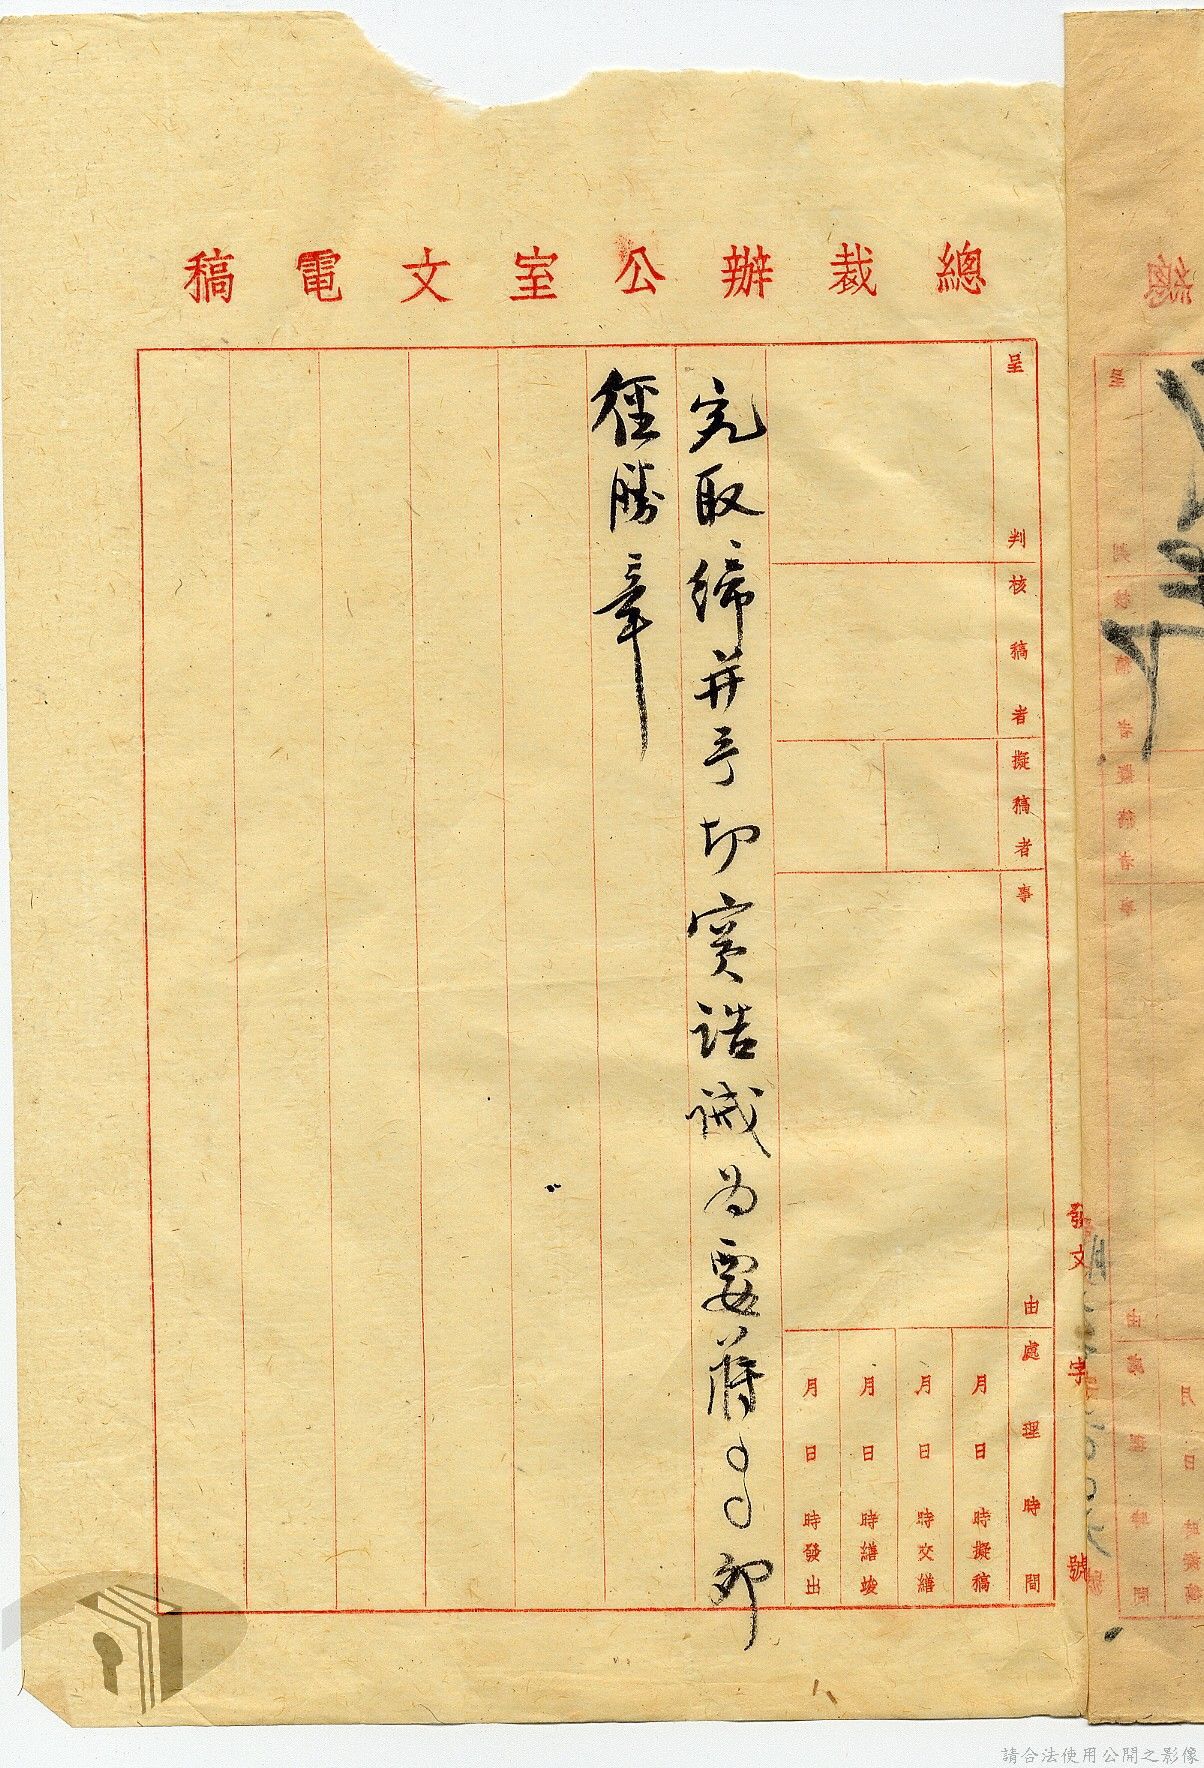 總裁辦公室文電稿
呈判
核稿者
擬稿者
事由
處理時間
月日時擬稿
月日時交繕
月日時繕竣
月日時發出
發文字號
究取締并予切實誥誡為要蔣
卯
經勝章
請合法使用公開之影像